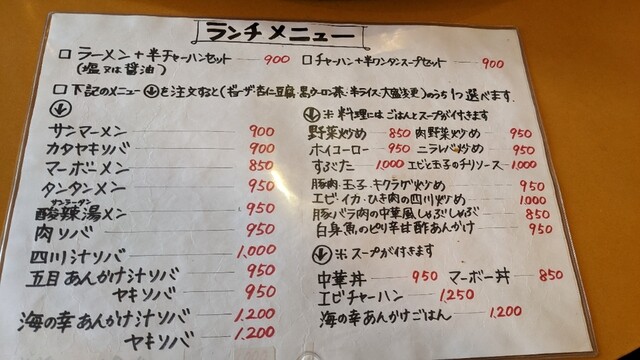 ランチメニュー
□ ラーメン+半チャーハンセット 900
(塩又は醤油)
□ チャーハン+半ワンタンスープセット 900
□ 下記のメニュー↓を注文すると(ギョーザ・杏仁豆腐・黒ウーロン茶・半ライス・大盛変更)のうち1つ選べます.
↓
サンマーメン 900
カタヤキソバ 900
マーボーメン 850
タンタンメン 950
サンラータン
酸辣湯メン 950
肉ソバ 950
四川汁ソバ 1,000
五目あんかけ汁ソバ 950
ヤキソバ 950
海の幸あんかけ汁ソバ 1,200
ヤキソバ 1,200
↓ ※ 料理にはごはんとスープが付きます
野菜炒め 850 肉野菜炒め 950
ホイコーロー 950 ニラレバ炒め 950
すぶた 1,000 エビと玉子のチリソース 1,000
豚肉・玉子・キクラゲ炒め 950
エビ・イカ・ひき肉の四川炒め 1,000
豚バラ肉の中華風しゃぶしゃぶ 850
白身魚のピリ辛甘酢あんかけ 950
↓ ※ スープが付きます
中華丼 950 マーボー丼 850
エビチャーハン 1,250
海の幸あんかけごはん 1,200